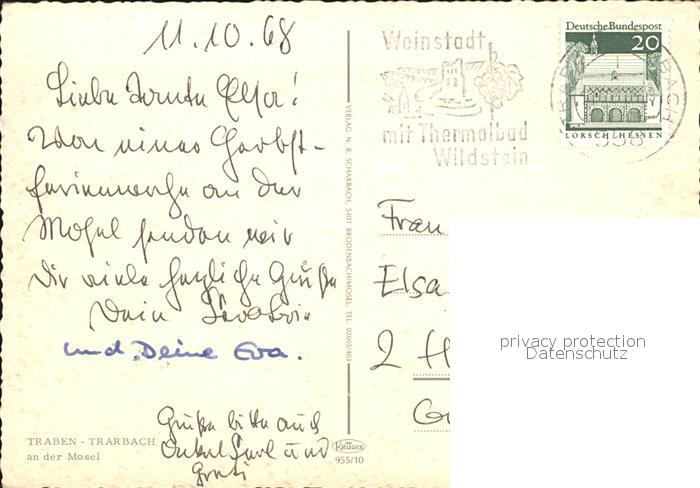 11.10.68
Liebe Tante Elsa!
Von einer Herbst-
ferienwoche an der
Mosel senden wir
Dir viele herzliche Grüße
Dein
und Deine Eva.
Grüße bitte auch
Onkel Karl und
TRABEN - TRARBACH
an der Mosel
VERLAG N. R. SCHARBACH, 5401 BRODENBACH/MOSEL, TEL. 02605/403
KRÜGER
955/10
Weinstadt
mit Thermalbad
Wildstein
Deutsche Bundespost
20
LORSCH/HESSEN
558
Frau
Elsa
2 H
privacy protection
Datenschutz